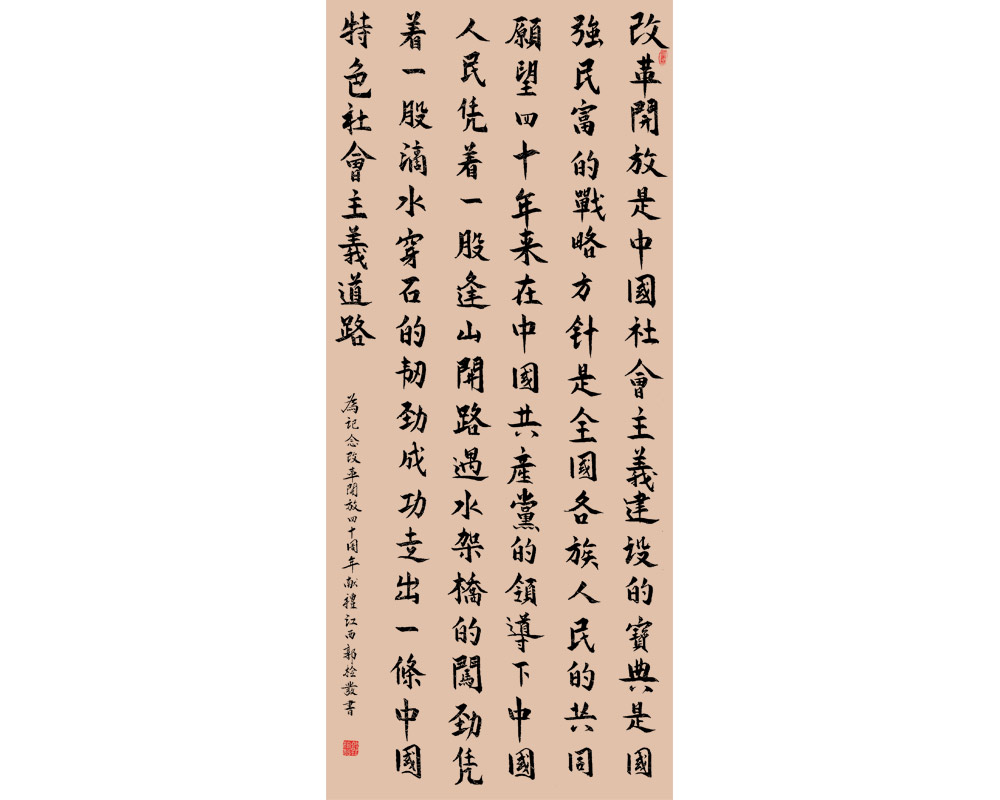 改革開放是中國社會主義建設的寶典是國
強民富的戰略方针是全國各族人民的共同
願望四十年来在中國共產黨的領導下中國
人民凭着一股逢山開路遇水架橋的闖勁凭
着一股滴水穿石的韧勁成功走出一條中國
特色社會主義道路
為記念改革開放四十周年献禮江西郭
書